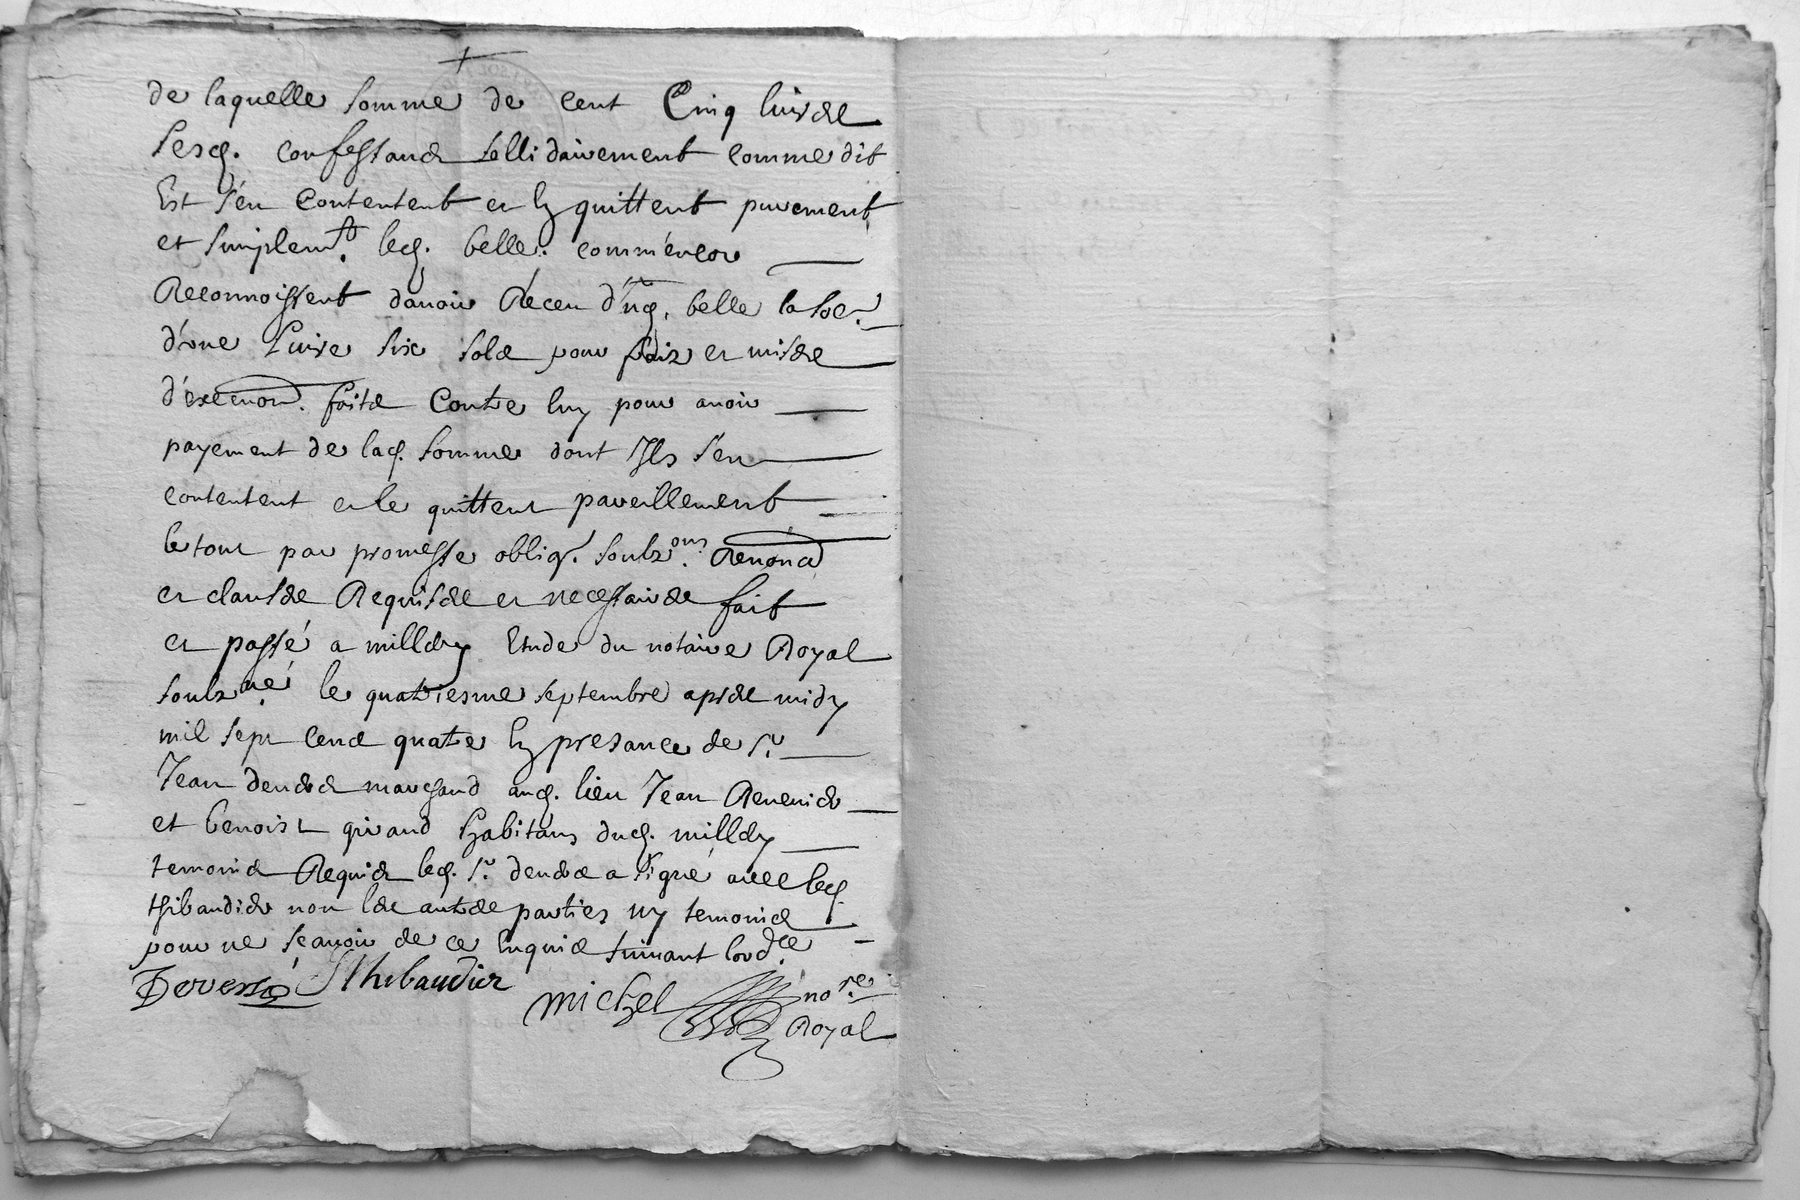 de laquelle somme de cent Cinq livres
lesd. confessants sollidairement comme dit
Est s'en Contentent et En quittent purement
et simplemt. led. belle. comm'encor
Reconnoissent d'avoir Receu d'ud. belle la soe.
d'une Livre six sols pour fraix et mises
d'execuon. faits Contre luy pour avoir
payement de lad. somme dont Ils s'en
contentent et le quittent pareillement
le tout par promesse obligr. soubzons. Renonc
et clauses Requises et necessaires fait
et passé a millery Etude du notaire Royal
soubzné. le quatriesme septembre apres midy
mil sept cens quatre En presance de sr.
Jean marchand aud. lieu Jean
et benoist giraud habitans dud. millery
temoins Requis led. sr. a signé avec led.
thibaudier non les autres parties ny temoins
pour ne scavoir de ce Enquis suivant l'ordce.
Thibaudier
michel nore.
Royal